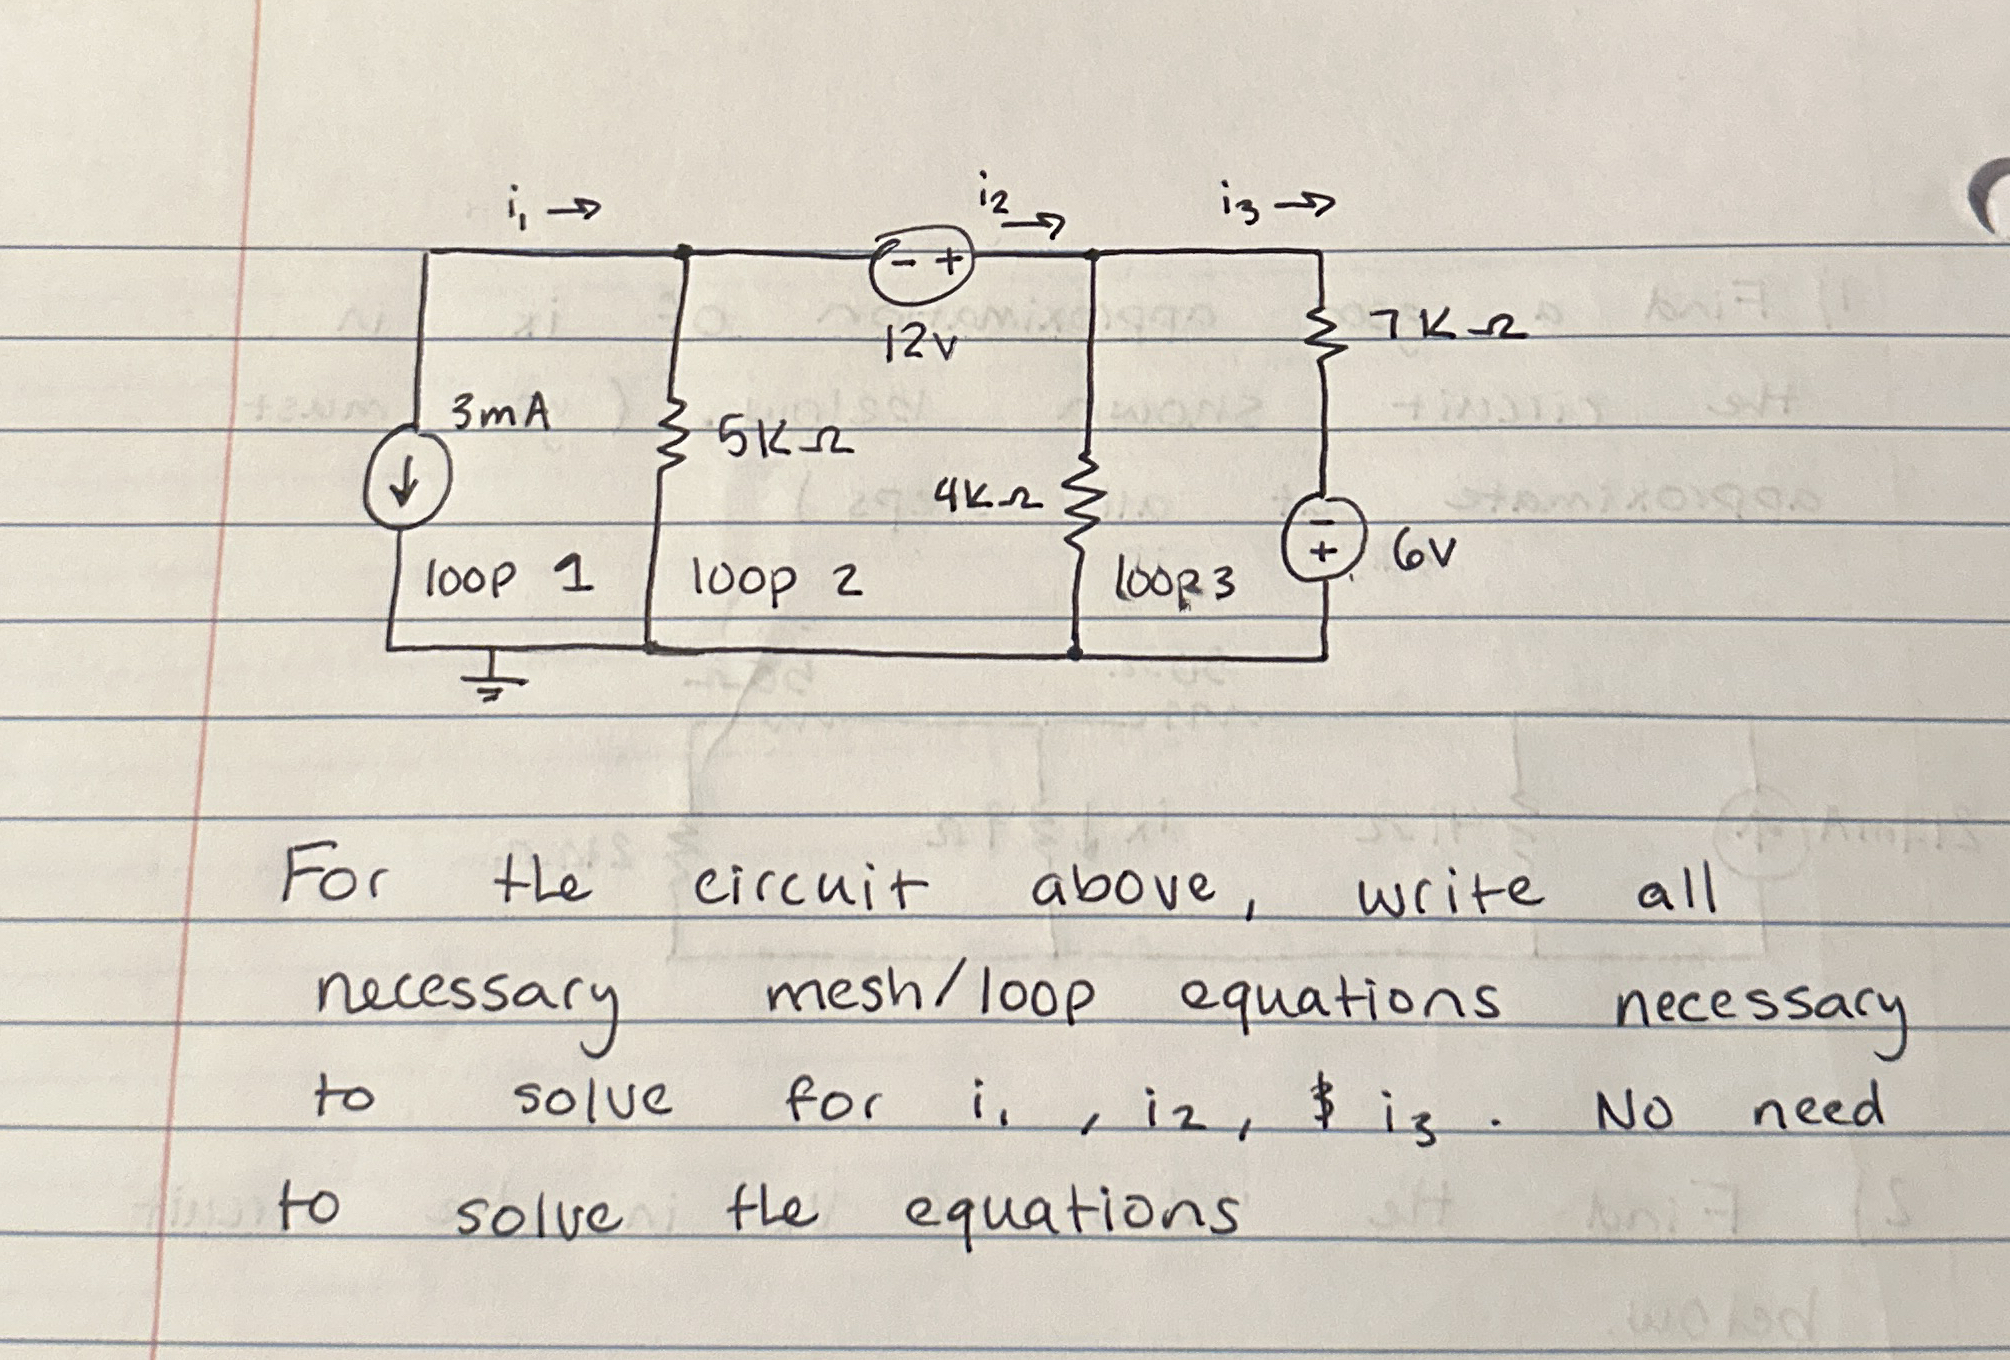 i₁ → i₂ → i₃ →
- +
12v
7KΩ
3mA
5KΩ
4KΩ
-
+
6V
loop 1 loop 2 loop 3
For the circuit above, write all
necessary mesh/loop equations necessary
to solve for i₁, i₂, $ i₃. No need
to solve the equations